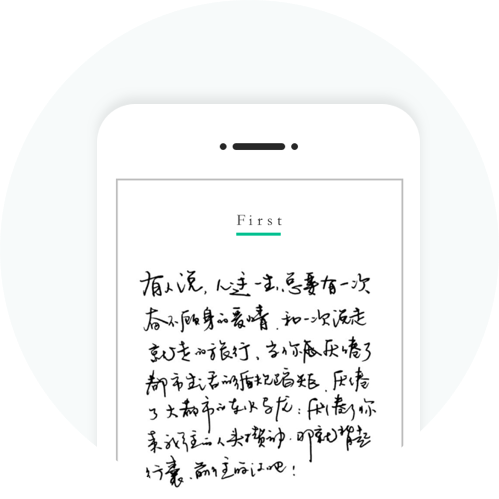 First
有人说，人这一生，总要有一次
奋不顾身的爱情，和一次说走
就走的旅行，当你厌倦了
都市生活的循规蹈矩，厌倦
了大都市的车水马龙；厌倦了你
来我往的人头攒动，那就背起
行囊，前往的江吧！